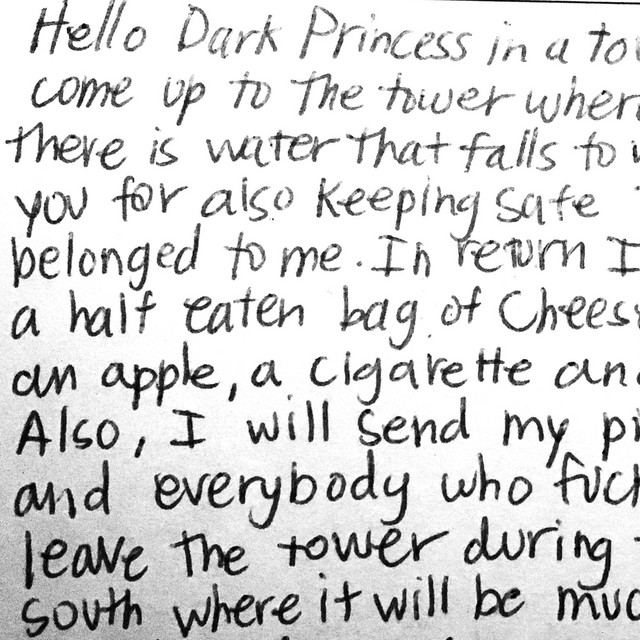 Hello Dark Princess in a to
come up to The tower wher
there is water that falls to
you for also keeping safe
belonged to me. In return I
a half eaten bag of Chees
an apple, a cigarette an
Also, I will send my pi
and everybody who fuc
leave The tower during
south where it will be muc